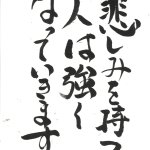 悲しみを持つ
人は強く
なっていきます